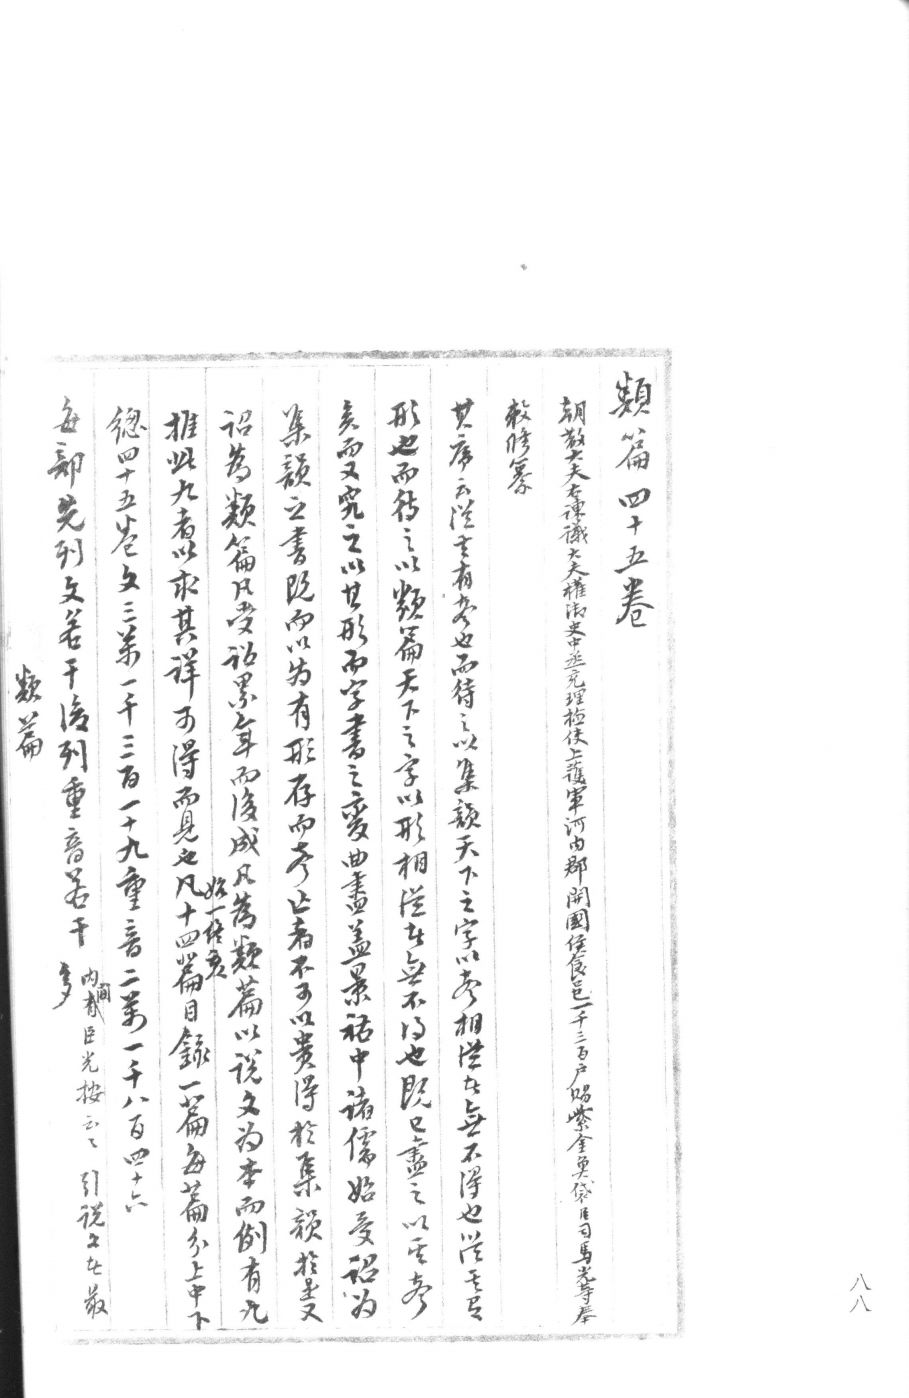 類篇四十五卷
朝散大夫右諫議大夫權御史中丞充理檢使上護軍河內郡開國侯食邑一千三百戶賜紫金魚袋臣司馬光等奉
敕修纂
其序云從其有聲也而待之以集韻天下之字以聲相從者無不得也從其有
形也而待之以類篇天下之字以形相從者無不得也既已盡之以其聲
矣而又究之以其形而字書之變曲盡蓋景祐中諸儒始受詔為
集韻之書既而以為有形存而聲亡者不可以責得於集韻於是又
詔為類篇凡受詔累年而後成凡為類篇以說文為本而例有九
推此九者以求其詳可得而見也凡十四篇目錄一篇每篇分上中下
始一終亥
總四十五卷文三萬一千三百一十九重音二萬一千八百四十六
每部先列文若干後列重音若干
內間有臣光按云々 引說文者最
多
類篇
八八